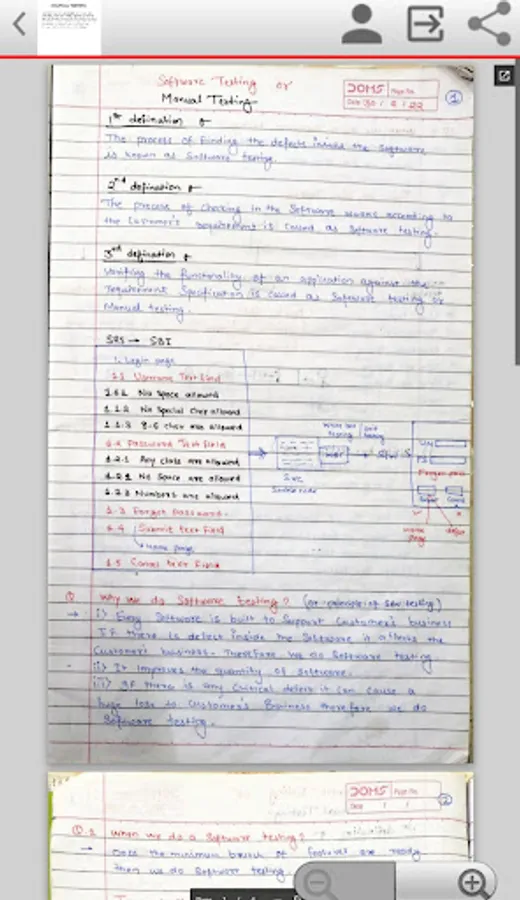 Software Testing or
Manual Testing
DOMS Page No.
Date 30 / 8 / 22
1
1st defination
The process of Finding the defects inside the software
is known as Software testing.
2nd defination
The process of checking in the Software works according to
the Customer's requirement is called as software testing.
3rd defination
Verifying the functionality of an application against the
requirement Specification is called as Software testing or
Manual testing.
SRS → SBI
1. Login page
1.1 Username Text field
1.1.1 No Space allowed
1.1.2 No Special Char allowed
1.1.3 8-6 char are allowed
1.2 Password Text field
1.2.1 Any char are allowed
1.2.2 No Space are allowed
1.2.3 Numbers are allowed
1.3 Forgot Password.
1.4 Submit text field
Home page
1.5 Cancel text field
White box testing
Source code
UN
home page
defect
Q Why we do Software testing? (or principle of S/w testing)
→ i) Every Software is built to Support Customer's business
If there is defect inside the Software it affects the
Customer's business. Therefore we do Software testing.
ii) It improves the quantity of software.
iii) If there is any Critical defect it can cause a
huge loss to Customer's Business therefore we do
Software testing.
DOMS Page No.
Date / /
2
Q.2 When we do a Software testing?
→ Once the minimum bunch of features are ready
then we do Software testing.